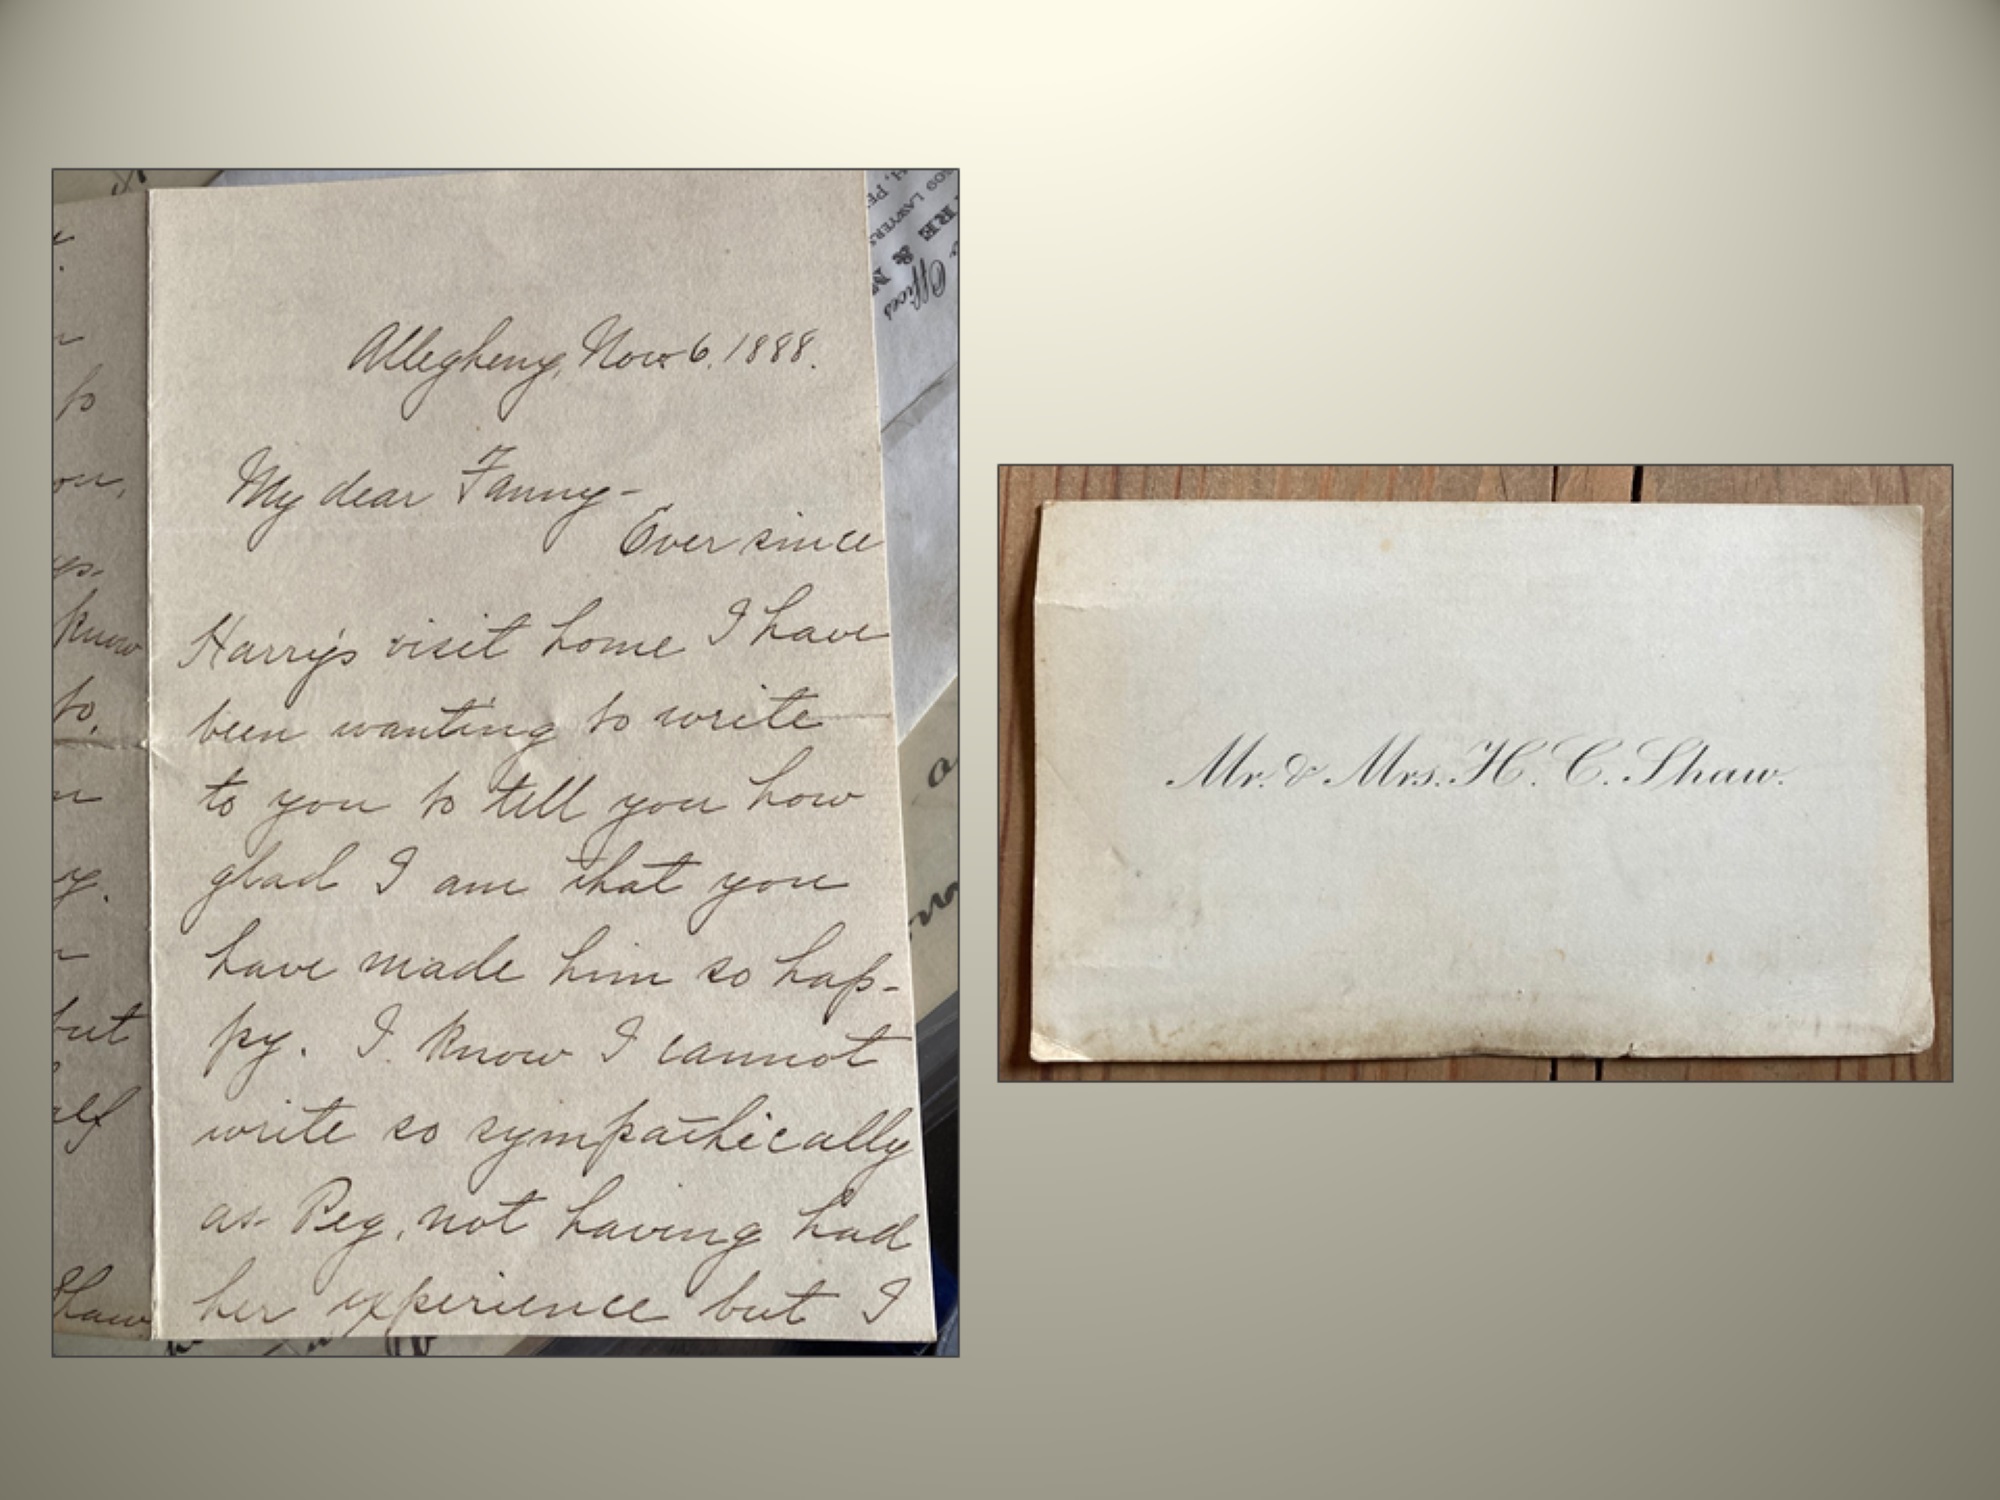 Allegheny, Nov. 6. 1888.
My dear Fanny-
Ever since
Harry's visit home I have
been wanting to write
to you to tell you how
glad I am that you
have made him so hap-
py. I know I cannot
write so sympathically
as Peg, not having had
her experience but I
to
know
to.
but
Shaw
LAWYERS
&
Offices
Mr. & Mrs. H. C. Shaw.